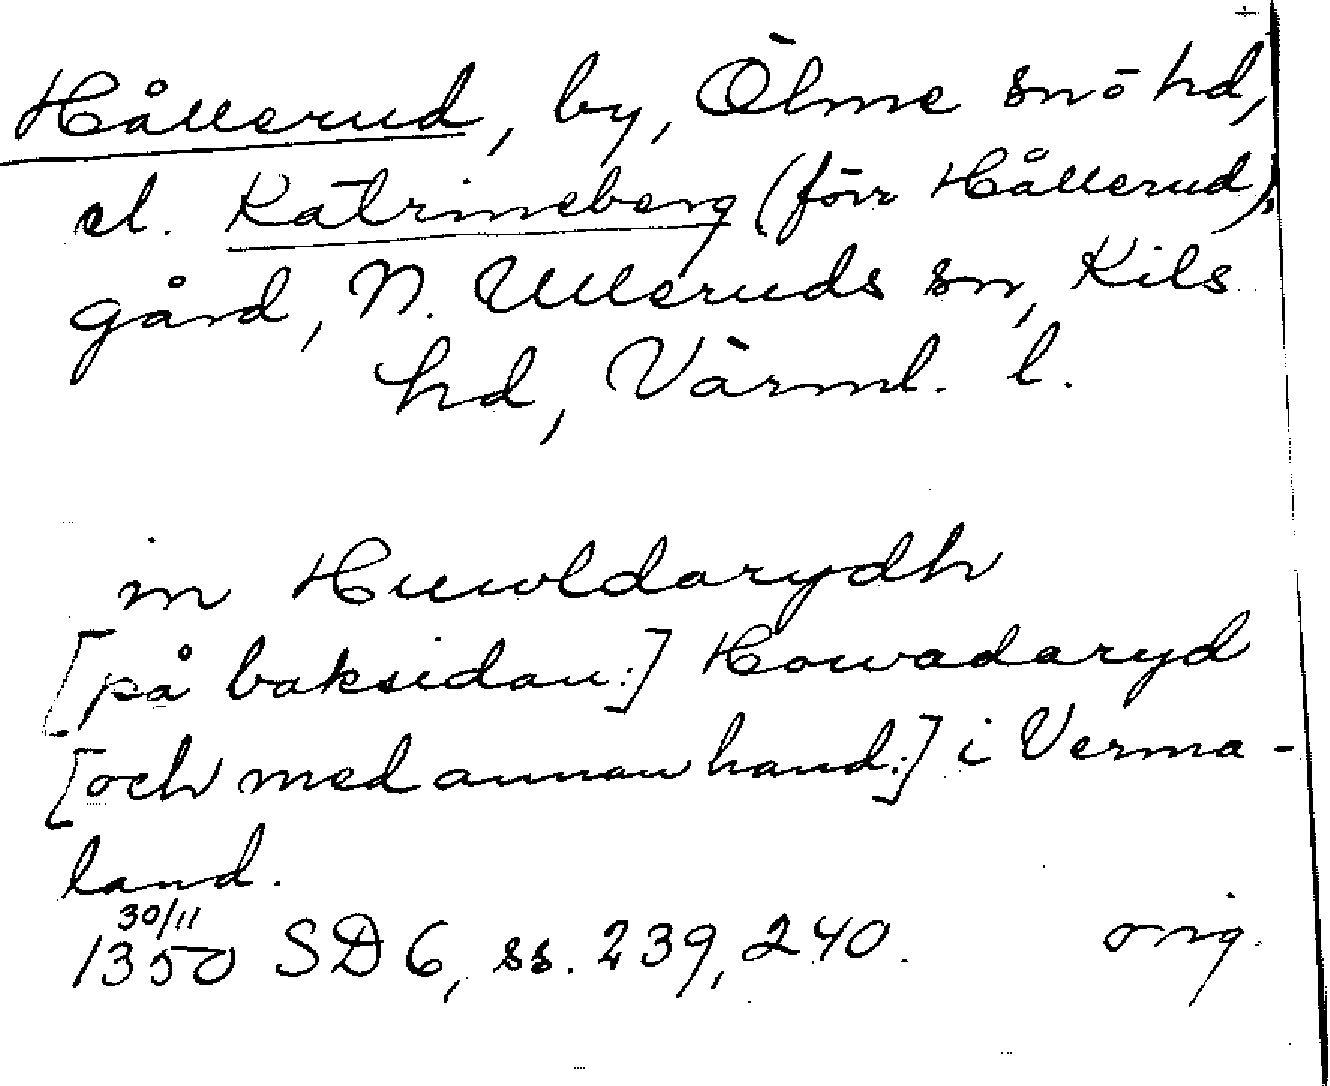 Hållerud, by, Ölme sn o hd,
el. Katrineberg (förr Hållerud),
gård, N. Ulleruds sn, Kils
hd, Värml. l.
in Huwldarydh
[på baksidan:] Howadaryd
[och med annan hand:] i Verma-
land.
30/11
1350 SD 6, ss. 239, 240. orig.